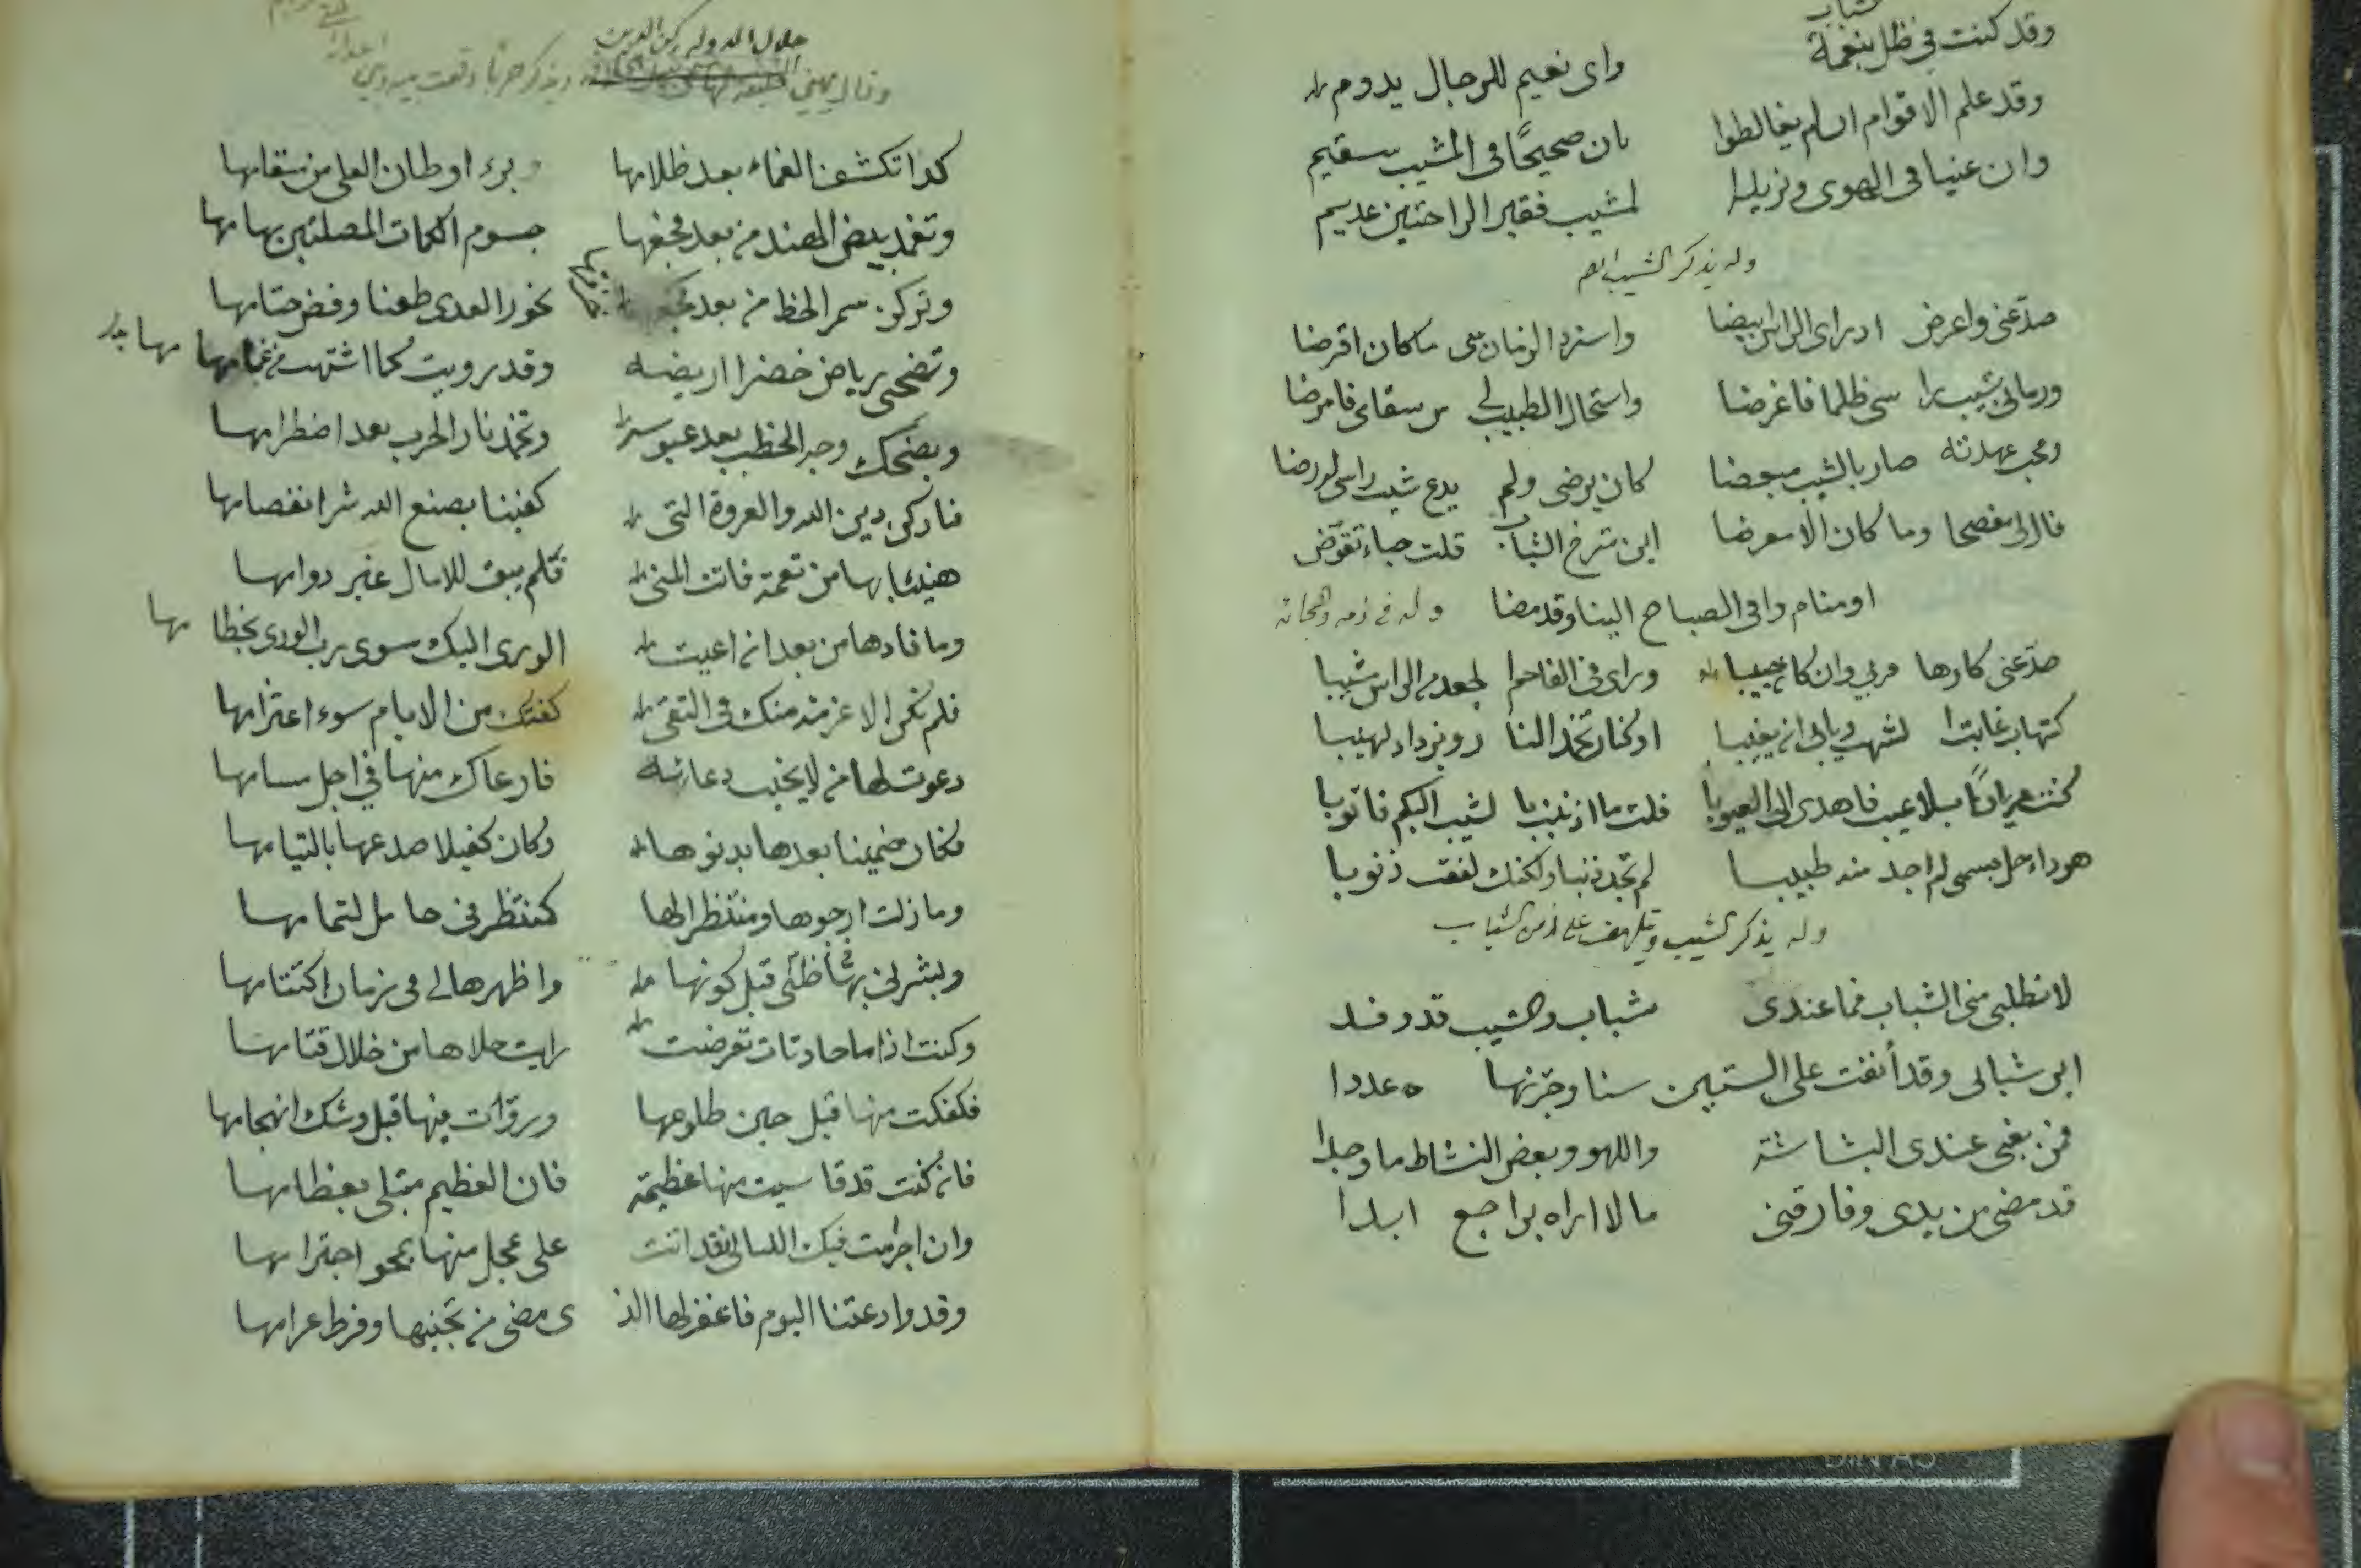 وقد كنت في ظل بنعمة واى نعيم للرجال يدوم
وقد علم الاقوام ان لم يغالطوا بان صحيحًا فى المشيب سقيم
وان غنيا فى الهوى ونزيله لمشيب فقير الراحتين عديم
وله يذكر الشيب
صدّ عنى واعرض اذ راى الراس ابيضا واسترد الزمان منى ما كان اقرضا
ورمانى بشيب را سى ظلما فاغرضا واستحال الطبيب لي من سقامى فامرضا
ومحب عهدته صار بالشيب مبغضا كان يرضى ولم يدع شيب راسى له رضا
قال لى مفصحا وما كان الا معرضا اين شرخ الشباب قلت خباء تقوّض
او منام وافى الصباح الينا وقد مضا وله فى ذمه
صدّ عنى كارها قربي وان كان حبيبا وراى فى الفاحم الجعد من الراس مشيبا
كشهاب غاب الشهب ويابى ان يغيبا او كنار تخمد النار ويزداد لهيبا
كنت عريانًا بلا عيب فاهدى لى العيوبا قلت ما اذنبت بالشيب اليكم فاتوبا
هو داء حل بجسمى لم اجد منه طبيبا لم تجد ذنبا ولكنك لفقت ذنوبا
وله يذكر الشيب ويتلهف على زمن الشباب
لا تطلبى منى الشباب فما عندى شباب والشيب قد وفد
اين شبابى وقد أنفت على الستين سنا وجزتها عددا
فمن بغى عندى البشاشة واللهو وبعض النشاط ما وجدا
قد مضى من يدى وفارقنى ما لا اراه براجع ابدا
جلال الدوله ركن الدين
وقال يهني ويذكر حربًا وقعت
كذا تكشف الغماء بعد ظلامها وبرء اوطان العلى من سقامها
وتغمد بيض الهند من بعد جسوم الكمات المصلتين بهامها
وتركز سمر الخط من بعد نحور العدى طعنا وفض ختامها
وتضحى رياض خضرا اريضه وقد رويت كما اشتهت من غمامها
ويضحك وجه الخطب بعد عبوسه وتخمد نار الحرب بعد اضطرامها
فيا ركن دين الله والعروة التى كفينا بصنع الله شر انفصامها
هنيئا بها من نعمة فاتت المنى فلم يبق للامال غير دوامها
وما قادها من بعد ان اعيت الورى اليك سوى رب الورى بخطامها
فلم تكن الا عزمة منك فى التقى كفتك من الايام سوء اعترامها
دعوت لها من لا يخيب دعاءه فارعاك منها في اجل مسامها
فكان ضمينا بعدها بدنوها وكان كفيلا صدعها بالتيامها
وما زلت ارجوها ومنتظرا لها كمنتظر فى حامل لتمامها
وبشرنى بها ظنى قبل كونها واظهرها لى فى زمان اكتتامها
وكنت اذا ما حادثات تعرضت رايت جلاها من خلال قتامها
فكفكت منها قبل حين طلوعها ورقّات منها قبل وشك انهجامها
فان كنت قد قاسيت منها عظيمة فان العظيم مبتلى بعظامها
وان اجرمت فيك الليالى فقد اتت على عجل منها بمحو اجترامها
وقد وادعتنا اليوم فاغفر لها الذى مضى من تجنيها وفرط عرامها